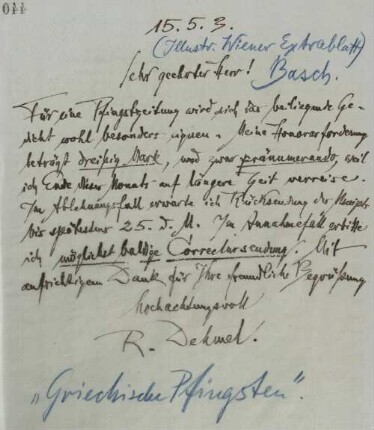 011
15.5.3.
(Illustr. Wiener Extrablatt)
Sehr geehrter Herr! Basch.
Für eine Pfingstzeitung wird sich das beiliegende Ge-
dicht wohl besonders eignen. Meine Honorarforderung
beträgt dreißig Mark, und zwar pränumerando, weil
ich Ende dieses Monats auf längere Zeit verreise.
Im Ablehnungsfall erwarte ich Rücksendung des Manuscripts
bis spätestens 25. d. M. Im Annahmefall erbitte
ich möglichst baldige Correctursendung. Mit
aufrichtigem Dank für Ihre freundliche Begrüßung
hochachtungsvoll
R. Dehmel.
„Griechische Pfingsten".